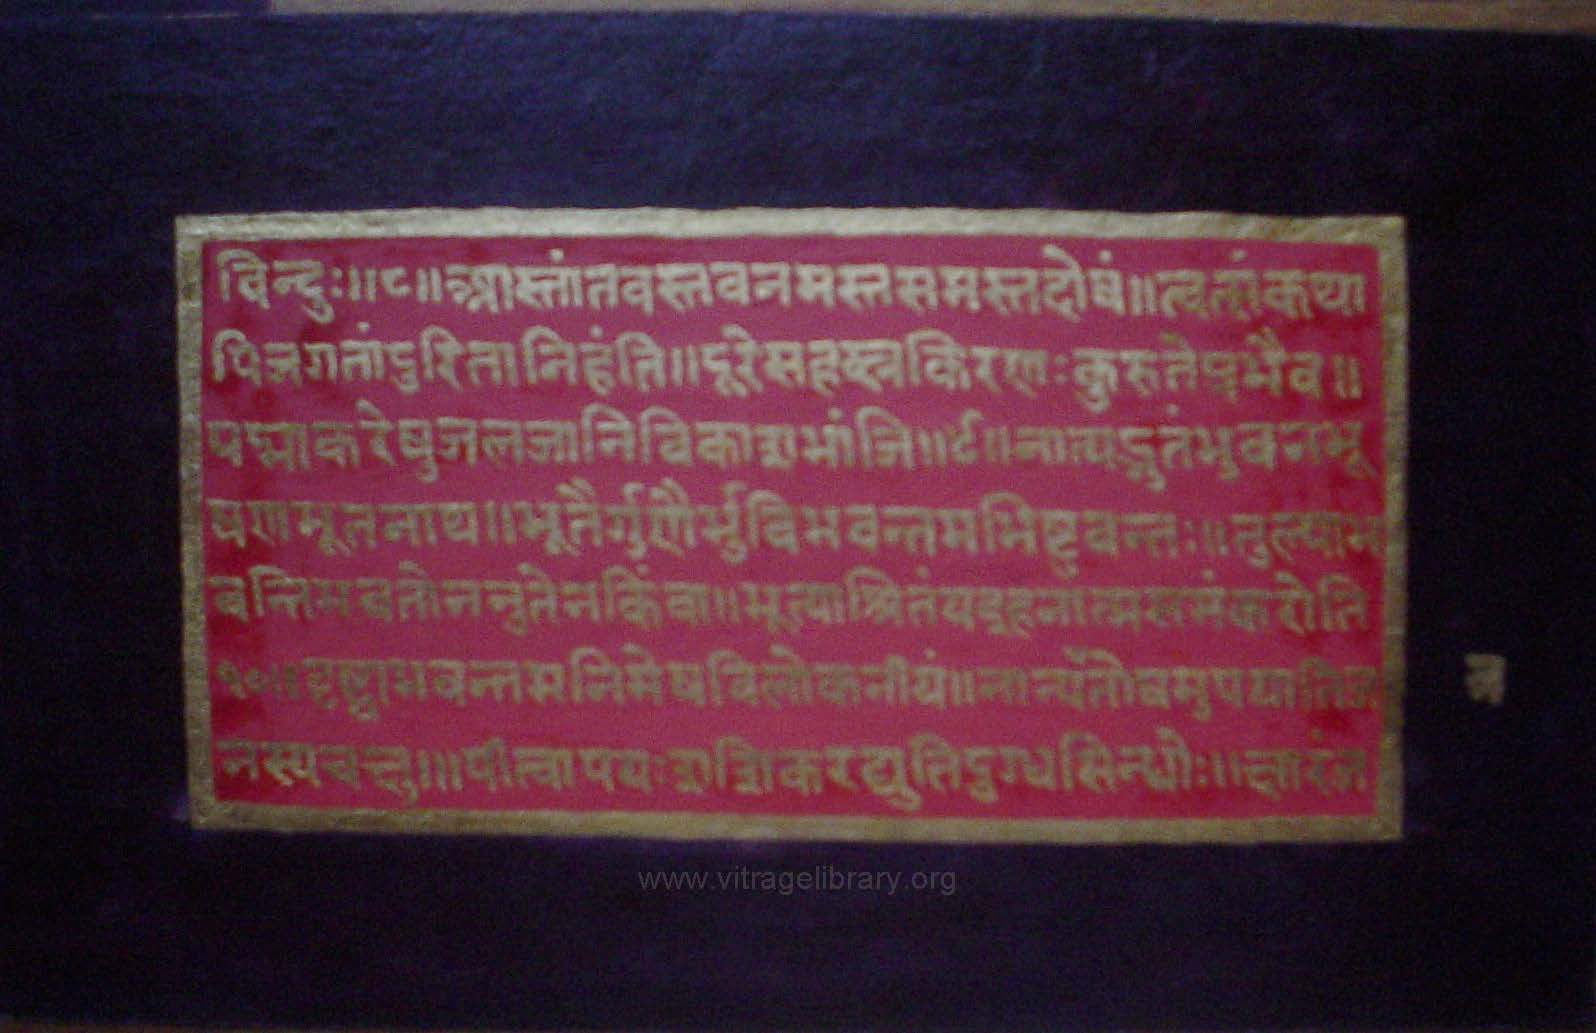 विन्दुः॥८॥आस्तांतवस्तवनमस्तसमस्तदोषं॥त्वत्संकथा
पिजगतांदुरितानिहंति॥दूरेसहस्त्रकिरणःकुरुतेप्रभैव॥
पद्माकरेषुजलजानिविकाशभांजि॥९॥नात्यद्भुतंभुवनभू
षणभूतनाथ॥भूतैर्गुणैर्भुविभवन्तमभिष्टुवन्तः॥तुल्याभ
वन्तिभवतोननुतेनकिंवा॥भूत्याश्रितंयइहनात्मसमंकरोति
१०॥दृष्ट्वाभवन्तमनिमेषविलोकनीयं॥नान्यत्रतोषमुपयातिज
नस्यचक्षु॥॥पीत्वापयःशशिकरद्युतिदुग्धसिन्धोः॥क्षारंज
www.vitragelibrary.org